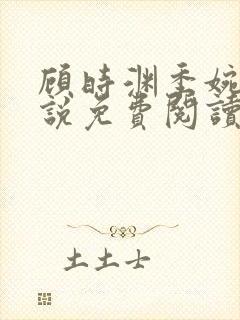 顾時渊季婉
說免費閱讀
土土士